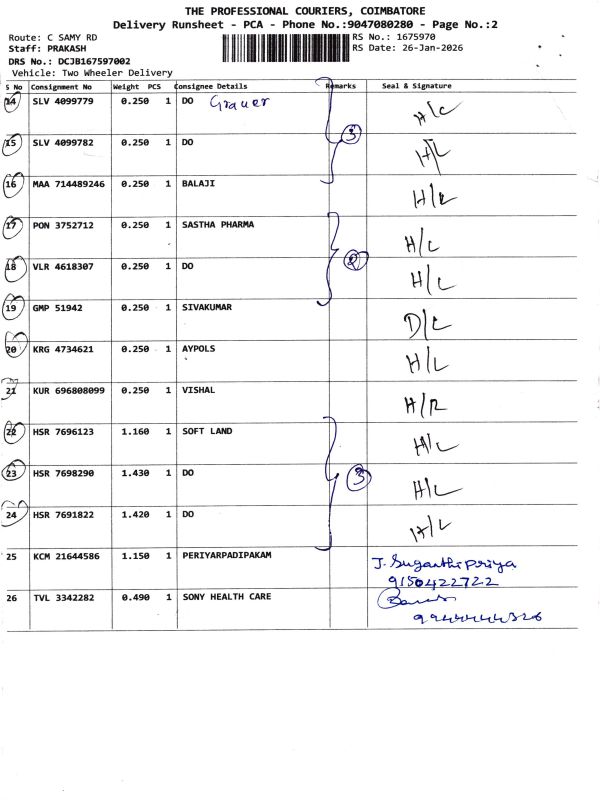 THE PROFESSIONAL COURIERS, COIMBATORE
Delivery Runsheet - PCA - Phone No.:9047080280 - Page No.:2
Route: C SAMY RD RS No.: 1675970
Staff: PRAKASH RS Date: 26-Jan-2026
DRS No.: DCJB167597002
Vehicle: Two Wheeler Delivery
S No Consignment No Weight PCS Consignee Details Remarks Seal & Signature
14 SLV 4099779 0.250 1 DO H/C
15 SLV 4099782 0.250 1 DO 3 H/L
16 MAA 714489246 0.250 1 BALAJI H/R
17 PON 3752712 0.250 1 SASTHA PHARMA H/C
18 VLR 4618307 0.250 1 DO H/L
19 GMP 51942 0.250 1 SIVAKUMAR D/C
20 KRG 4734621 0.250 1 AYPOLS H/L
21 KUR 696808099 0.250 1 VISHAL H/R
22 HSR 7696123 1.160 1 SOFT LAND H/L
23 HSR 7698290 1.430 1 DO 3 H/L
24 HSR 7691822 1.420 1 DO H/L
25 KCM 21644586 1.150 1 PERIYARPADIPAKAM J. Suganthi priya
9150422722
26 TVL 3342282 0.490 1 SONY HEALTH CARE